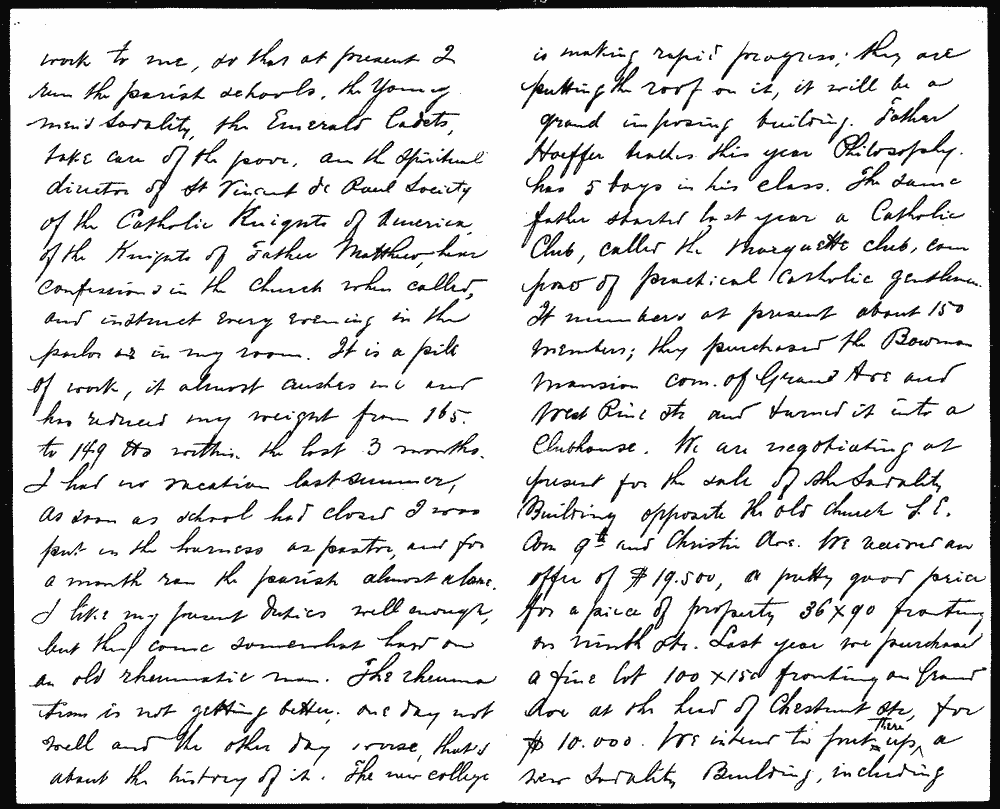 work to me, so that at present I
run the parish schools, the Young
mens Sodality, the Emerald Cadets,
take care of the poor, am the Spiritual
director of St Vincent de Paul Society
of the Catholic Knights of America,
of the Knights of Father Matthew, hear
confessions in the church when called,
and instruct every evening in the
parlor or in my room. It is a pile
of work, it almost crushes me and
has reduced my weight from 165.
to 149 lbs within the last 3 months.
I had no vacation last summer,
As soon as school had closed I was
put in the harness as pastor, and for
a month ran the parish almost alone.
I like my present duties well enough,
but they come somewhat hard on
an old rheumatic man. The rheuma
tism is not getting better. one day not
well and the other day worse, that's
about the history of it. The new college
is making rapid progress; they are
putting the roof on it, it will be a
grand imposing building. Father
Hoeffer teaches this year Philosophy.
has 5 boys in his class. The same
father started last year a Catholic
Club, called the Marquette club, com
posed of practical Catholic gentlemen.
It numbers at present about 150
members; they purchased the Bowman
Mansion corn. of Grand Ave and
West Pine str and turned it into a
Clubhouse. We are negotiating at
present for the sale of the Sodality
Building opposite the old church S. E.
Corn 9th and Christie Ave. We received an
offer of $ 19.500, a pretty good price
for a piece of property 36 x 90 fronting
on ninth str. Last year we purchased
a fine lot 100 x 150 fronting on Grand
Ave at the head of Chestnut str, for
$ 10.000. We intend to put up there a
new Sodality Building, including